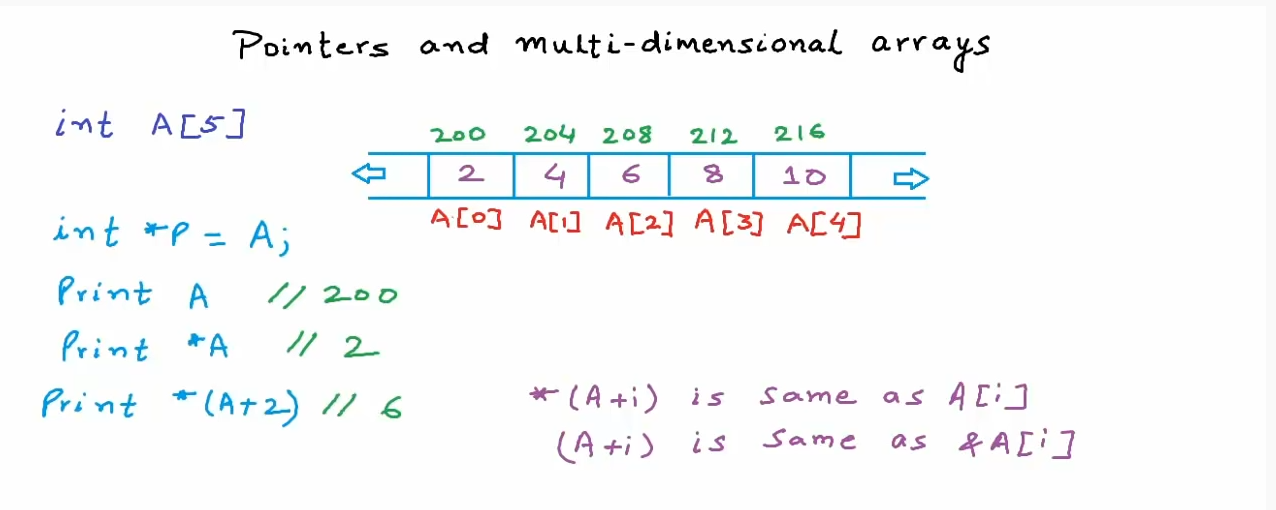 Pointers and multi-dimensional arrays
int A[5]
200 204 208 212 216
2 4 6 8 10
A[0] A[1] A[2] A[3] A[4]
int *P = A;
Print A // 200
Print *A // 2
Print *(A+2) // 6
*(A+i) is same as A[i]
(A+i) is same as &A[i]